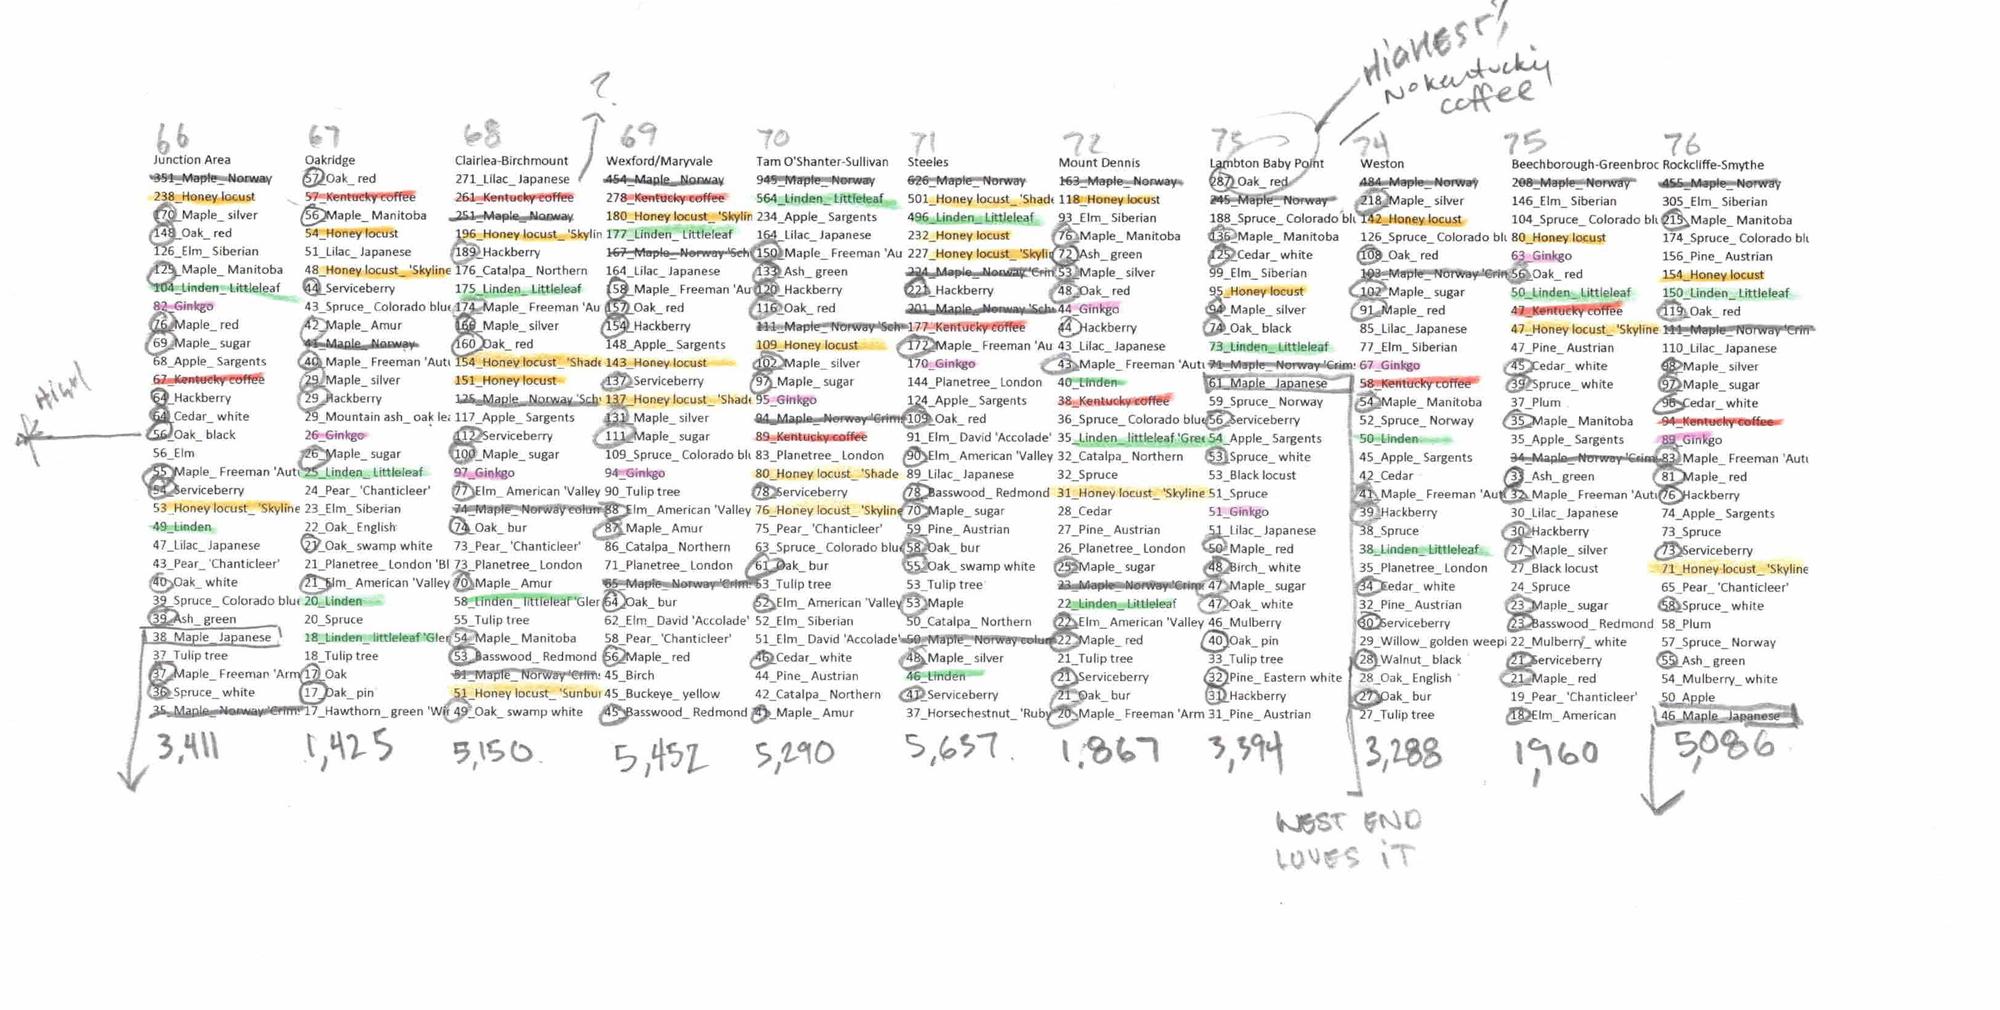 HIGHEST!
No Kentucky
coffee
?
66
Junction Area
351_Maple_ Norway
238_Honey locust
170_Maple_ silver
148_Oak_ red
126_Elm_ Siberian
125_Maple_ Manitoba
104_Linden_ Littleleaf
82_Ginkgo
76_Maple_ red
69_Maple_ sugar
68_Apple_ Sargents
67_Kentucky coffee
64_Hackberry
64_Cedar_ white
56_Oak_ black
56_Elm
55_Maple_ Freeman 'Aut
54_Serviceberry
53_Honey locust_ 'Skyline
49_Linden
47_Lilac_ Japanese
43_Pear_ 'Chanticleer'
40_Oak_ white
39_Spruce_ Colorado blu
39_Ash_ green
38_Maple_ Japanese
37_Tulip tree
37_Maple_ Freeman 'Arm
36_Spruce_ white
35_Maple_ Norway 'Crim
3,411
HIGH
67
Oakridge
57_Oak_ red
57_Kentucky coffee
56_Maple_ Manitoba
54_Honey locust
51_Lilac_ Japanese
48_Honey locust_ 'Skyline
44_Serviceberry
43_Spruce_ Colorado blue
42_Maple_ Amur
41_Maple_ Norway
40_Maple_ Freeman 'Aut
29_Maple_ silver
29_Hackberry
29_Mountain ash_ oak lea
26_Ginkgo
26_Maple_ sugar
25_Linden_ Littleleaf
24_Pear_ 'Chanticleer'
23_Elm_ Siberian
22_Oak_ English
21_Oak_ swamp white
21_Planetree_ London 'Bl
21_Elm_ American 'Valley
20_Linden
20_Spruce
18_Linden_ littleleaf 'Gler
18_Tulip tree
17_Oak
17_Oak_ pin
17_Hawthorn_ green 'Wi
1,425
68
Clairlea-Birchmount
271_Lilac_ Japanese
261_Kentucky coffee
251_Maple_ Norway
196_Honey locust_ 'Skylin
189_Hackberry
176_Catalpa_ Northern
175_Linden_ Littleleaf
174_Maple_ Freeman 'Au
166_Maple_ silver
160_Oak_ red
154_Honey locust_ 'Shade
151_Honey locust
125_Maple_ Norway 'Sch
117_Apple_ Sargents
112_Serviceberry
100_Maple_ sugar
97_Ginkgo
77_Elm_ American 'Valley
74_Maple_ Norway colum
74_Oak_ bur
73_Pear_ 'Chanticleer'
73_Planetree_ London
70_Maple_ Amur
58_Linden_ littleleaf 'Gler
55_Tulip tree
54_Maple_ Manitoba
53_Basswood_ Redmond
51_Maple_ Norway 'Crim
51_Honey locust_ 'Sunbu
49_Oak_ swamp white
5,150
69
Wexford/Maryvale
454_Maple_ Norway
278_Kentucky coffee
180_Honey locust_ 'Skylin
177_Linden_ Littleleaf
167_Maple_ Norway 'Sch
164_Lilac_ Japanese
158_Maple_ Freeman 'Au
157_Oak_ red
154_Hackberry
148_Apple_ Sargents
143_Honey locust
137_Serviceberry
137_Honey locust_ 'Shade
131_Maple_ silver
111_Maple_ sugar
109_Spruce_ Colorado bl
94_Ginkgo
90_Tulip tree
88_Elm_ American 'Valley
87_Maple_ Amur
86_Catalpa_ Northern
71_Planetree_ London
65_Maple_ Norway 'Crim
64_Oak_ bur
62_Elm_ David 'Accolade'
58_Pear_ 'Chanticleer'
56_Maple_ red
45_Birch
45_Buckeye_ yellow
45_Basswood_ Redmond
5,452
70
Tam O'Shanter-Sullivan
945_Maple_ Norway
564_Linden_ Littleleaf
234_Apple_ Sargents
164_Lilac_ Japanese
150_Maple_ Freeman 'Au
133_Ash_ green
120_Hackberry
116_Oak_ red
111_Maple_ Norway 'Sch
109_Honey locust
102_Maple_ silver
97_Maple_ sugar
95_Ginkgo
94_Maple_ Norway 'Crim
89_Kentucky coffee
83_Planetree_ London
80_Honey locust_ 'Shade
78_Serviceberry
76_Honey locust_ 'Skyline
75_Pear_ 'Chanticleer'
63_Spruce_ Colorado blue
61_Oak_ bur
53_Tulip tree
52_Elm_ American 'Valley
52_Elm_ Siberian
51_Elm_ David 'Accolade'
46_Cedar_ white
44_Pine_ Austrian
42_Catalpa_ Northern
41_Maple_ Amur
5,290
71
Steeles
626_Maple_ Norway
501_Honey locust_ 'Shade
496_Linden_ Littleleaf
232_Honey locust
227_Honey locust_ 'Skylin
224_Maple_ Norway 'Crin
221_Hackberry
201_Maple_ Norway 'Sch
177_Kentucky coffee
172_Maple_ Freeman 'Au
170_Ginkgo
144_Planetree_ London
124_Apple_ Sargents
109_Oak_ red
91_Elm_ David 'Accolade'
90_Elm_ American 'Valley
89_Lilac_ Japanese
78_Basswood_ Redmond
70_Maple_ sugar
59_Pine_ Austrian
58_Oak_ bur
55_Oak_ swamp white
53_Tulip tree
53_Maple
50_Catalpa_ Northern
50_Maple_ Norway colum
48_Maple_ silver
46_Linden
41_Serviceberry
37_Horsechestnut_ 'Ruby
5,637
72
Mount Dennis
163_Maple_ Norway
118_Honey locust
93_Elm_ Siberian
76_Maple_ Manitoba
72_Ash_ green
53_Maple_ silver
48_Oak_ red
44_Ginkgo
44_Hackberry
43_Lilac_ Japanese
43_Maple_ Freeman 'Aut
40_Linden
38_Kentucky coffee
36_Spruce_ Colorado blue
35_Linden_ littleleaf 'Gree
32_Catalpa_ Northern
32_Spruce
31_Honey locust_ 'Skyline
28_Cedar
27_Pine_ Austrian
26_Planetree_ London
25_Maple_ sugar
23_Maple_ Norway 'Crim
22_Linden_ Littleleaf
22_Elm_ American 'Valley
22_Maple_ red
21_Tulip tree
21_Serviceberry
21_Oak_ bur
20_Maple_ Freeman 'Arm
1,867
73
Lambton Baby Point
287_Oak_ red
245_Maple_ Norway
188_Spruce_ Colorado bl
136_Maple_ Manitoba
125_Cedar_ white
99_Elm_ Siberian
95_Honey locust
94_Maple_ silver
74_Oak_ black
73_Linden_ Littleleaf
71_Maple_ Norway 'Crim
61_Maple_ Japanese
59_Spruce_ Norway
56_Serviceberry
54_Apple_ Sargents
53_Spruce_ white
53_Black locust
51_Spruce
51_Ginkgo
51_Lilac_ Japanese
50_Maple_ red
48_Birch_ white
47_Maple_ sugar
47_Oak_ white
46_Mulberry
40_Oak_ pin
33_Tulip tree
32_Pine_ Eastern white
31_Hackberry
31_Pine_ Austrian
3,394
WEST END
LOVES IT
74
Weston
484_Maple_ Norway
218_Maple_ silver
142_Honey locust
126_Spruce_ Colorado bl
108_Oak_ red
103_Maple_ Norway 'Crin
102_Maple_ sugar
91_Maple_ red
85_Lilac_ Japanese
77_Elm_ Siberian
67_Ginkgo
58_Kentucky coffee
54_Maple_ Manitoba
52_Spruce_ Norway
50_Linden
45_Apple_ Sargents
42_Cedar
41_Maple_ Freeman 'Aut
39_Hackberry
38_Spruce
38_Linden_ Littleleaf
35_Planetree_ London
34_Cedar_ white
32_Pine_ Austrian
30_Serviceberry
29_Willow_ golden weepi
28_Walnut_ black
28_Oak_ English
27_Oak_ bur
27_Tulip tree
3,288
75
Beechborough-Greenbroo
208_Maple_ Norway
146_Elm_ Siberian
104_Spruce_ Colorado bl
80_Honey locust
63_Ginkgo
56_Oak_ red
50_Linden_ Littleleaf
47_Kentucky coffee
47_Honey locust_ 'Skyline
47_Pine_ Austrian
45_Cedar_ white
39_Spruce_ white
37_Plum
35_Maple_ Manitoba
35_Apple_ Sargents
34_Maple_ Norway 'Crim
33_Ash_ green
32_Maple_ Freeman 'Aut
30_Lilac_ Japanese
30_Hackberry
27_Maple_ silver
27_Black locust
24_Spruce
23_Maple_ sugar
23_Basswood_ Redmond
22_Mulberry_ white
21_Serviceberry
21_Maple_ red
19_Pear_ 'Chanticleer'
18_Elm_ American
1,960
76
Rockcliffe-Smythe
455_Maple_ Norway
305_Elm_ Siberian
215_Maple_ Manitoba
174_Spruce_ Colorado blu
156_Pine_ Austrian
154_Honey locust
150_Linden_ Littleleaf
119_Oak_ red
111_Maple_ Norway 'Crin
110_Lilac_ Japanese
98_Maple_ silver
97_Maple_ sugar
96_Cedar_ white
94_Kentucky coffee
89_Ginkgo
83_Maple_ Freeman 'Aut
81_Maple_ red
76_Hackberry
74_Apple_ Sargents
73_Spruce
73_Serviceberry
71_Honey locust_ 'Skyline
65_Pear_ 'Chanticleer'
58_Spruce_ white
58_Plum
57_Spruce_ Norway
55_Ash_ green
54_Mulberry_ white
50_Apple
46_Maple_ Japanese
5,086